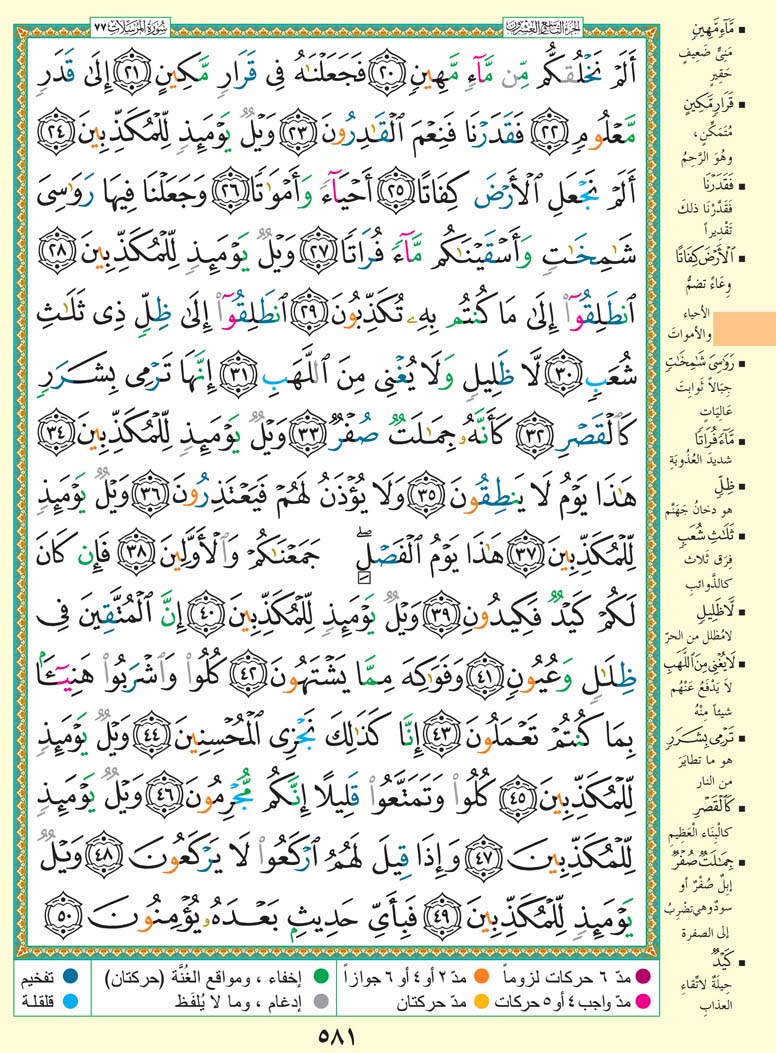 سُورَةُ المُرْسَلَاتِ ٧٧
الجزء التاسع والعشرون
أَلَمْ نَخْلُقكُّم مِّن مَّآءٍ مَّهِينٍ ٢٠ فَجَعَلْنَـٰهُ فِى قَرَارٍ مَّكِينٍ ٢١ إِلَىٰ قَدَرٍ
مَّعْلُومٍ ٢٢ فَقَدَرْنَا فَنِعْمَ ٱلْقَـٰدِرُونَ ٢٣ وَيْلٌ يَوْمَئِذٍ لِّلْمُكَذِّبِينَ ٢٤
أَلَمْ نَجْعَلِ ٱلْأَرْضَ كِفَاتًا ٢٥ أَحْيَآءً وَأَمْوَٰتًا ٢٦ وَجَعَلْنَا فِيهَا رَوَٰسِىَ
شَـٰمِخَـٰتٍ وَأَسْقَيْنَـٰكُم مَّآءً فُرَاتًا ٢٧ وَيْلٌ يَوْمَئِذٍ لِّلْمُكَذِّبِينَ ٢٨
ٱنطَلِقُوٓا۟ إِلَىٰ مَا كُنتُم بِهِۦ تُكَذِّبُونَ ٢٩ ٱنطَلِقُوٓا۟ إِلَىٰ ظِلٍّ ذِى ثَلَـٰثِ
شُعَبٍ ٣٠ لَّا ظَلِيلٍ وَلَا يُغْنِى مِنَ ٱللَّهَبِ ٣١ إِنَّهَا تَرْمِى بِشَرَرٍ
كَٱلْقَصْرِ ٣٢ كَأَنَّهُۥ جِمَـٰلَتٌ صُفْرٌ ٣٣ وَيْلٌ يَوْمَئِذٍ لِّلْمُكَذِّبِينَ ٣٤
هَـٰذَا يَوْمُ لَا يَنطِقُونَ ٣٥ وَلَا يُؤْذَنُ لَهُمْ فَيَعْتَذِرُونَ ٣٦ وَيْلٌ يَوْمَئِذٍ
لِّلْمُكَذِّبِينَ ٣٧ هَـٰذَا يَوْمُ ٱلْفَصْلِ ۖ جَمَعْنَـٰكُمْ وَٱلْأَوَّلِينَ ٣٨ فَإِن كَانَ
لَكُمْ كَيْدٌ فَكِيدُونِ ٣٩ وَيْلٌ يَوْمَئِذٍ لِّلْمُكَذِّبِينَ ٤٠ إِنَّ ٱلْمُتَّقِينَ فِى
ظِلَـٰلٍ وَعُيُونٍ ٤١ وَفَوَٰكِهَ مِمَّا يَشْتَهُونَ ٤٢ كُلُوا۟ وَٱشْرَبُوا۟ هَنِيٓـًٔۢا
بِمَا كُنتُمْ تَعْمَلُونَ ٤٣ إِنَّا كَذَٰلِكَ نَجْزِى ٱلْمُحْسِنِينَ ٤٤ وَيْلٌ يَوْمَئِذٍ
لِّلْمُكَذِّبِينَ ٤٥ كُلُوا۟ وَتَمَتَّعُوا۟ قَلِيلًا إِنَّكُم مُّجْرِمُونَ ٤٦ وَيْلٌ يَوْمَئِذٍ
لِّلْمُكَذِّبِينَ ٤٧ وَإِذَا قِيلَ لَهُمُ ٱرْكَعُوا۟ لَا يَرْكَعُونَ ٤٨ وَيْلٌ
يَوْمَئِذٍ لِّلْمُكَذِّبِينَ ٤٩ فَبِأَىِّ حَدِيثٍۭ بَعْدَهُۥ يُؤْمِنُونَ ٥٠
مَّآءٍ مَّهِينٍ
مَنِيٍّ ضَعِيفٍ
حَقِيرٍ
قَرَارٍ مَّكِينٍ
مُتَمَكَّنٍ ،
وهُوَ الرَّحِمُ
فَقَدَرْنَا
فَقَدَّرْنَا ذلكَ
تَقْدِيراً
ٱلْأَرْضَ كِفَاتًا
وِعَاءً تضمُّ
الأحياء
والأمواتَ
رَوَٰسِىَ شَـٰمِخَـٰتٍ
جِبَالاً ثَوابتَ
عَاليَاتٍ
مَّآءً فُرَاتًا
شديدَ العُذُوبَةِ
ظِلٍّ
هو دخانُ جَهَنَّم
ثَلَـٰثِ شُعَبٍ
فِرَقٍ ثَلاث
كالذَّوائبِ
لَّا ظَلِيلٍ
لا مُظَلّل من الحرّ
لَا يُغْنِى مِنَ ٱللَّهَبِ
لا يَدْفَعُ عَنْهُم
شيئاً مِنْهُ
تَرْمِى بِشَرَرٍ
هو ما تطايَرَ
من النار
كَٱلْقَصْرِ
كالْبِنَاءِ الْعَظِيمِ
جِمَـٰلَتٌ صُفْرٌ
إبِلٌ صُفْرٌ أو
سودٌ وهي تضْرِبُ
إلى الصفرة
كَيْدٌ
حِيلَةٌ لاتّقاءِ
العذابِ
مدّ ٦ حركات لزوماً
مدّ ٢ أو ٤ أو ٦ جوازاً
إخفاء ، ومواقع الغُنَّة (حركتان)
تفخيم
مدّ واجب ٤ أو ٥ حركات
مدّ حركتان
إدغام ، وما لا يُلفَظ
قلقلة
٥٨١